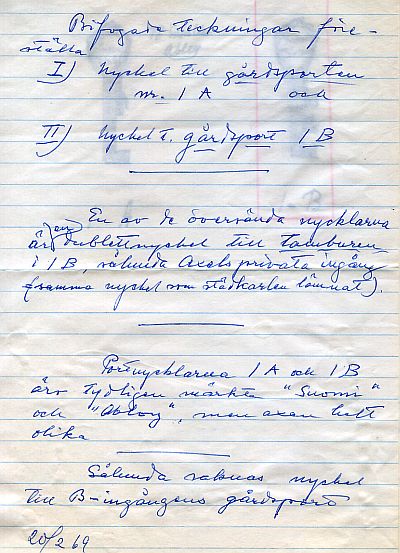 Bifogade teckningar före-
ställa
I) Nyckel till gårdsporten
nr. 1 A och
II) Nyckel t. gårdsport 1 B
En av de översända nycklarna
är en dublettnyckel till tamburen
i 1 B, sålunda Axels privata ingång
(samma nyckel som städkarlen lämnat).
Portnycklarna 1 A och 1 B
äro tydligen märkta "Suomi"
och "Abloy", men axan helt
olika
Sålunda saknas nyckel
till B-ingångens gårdsport
20/2 69